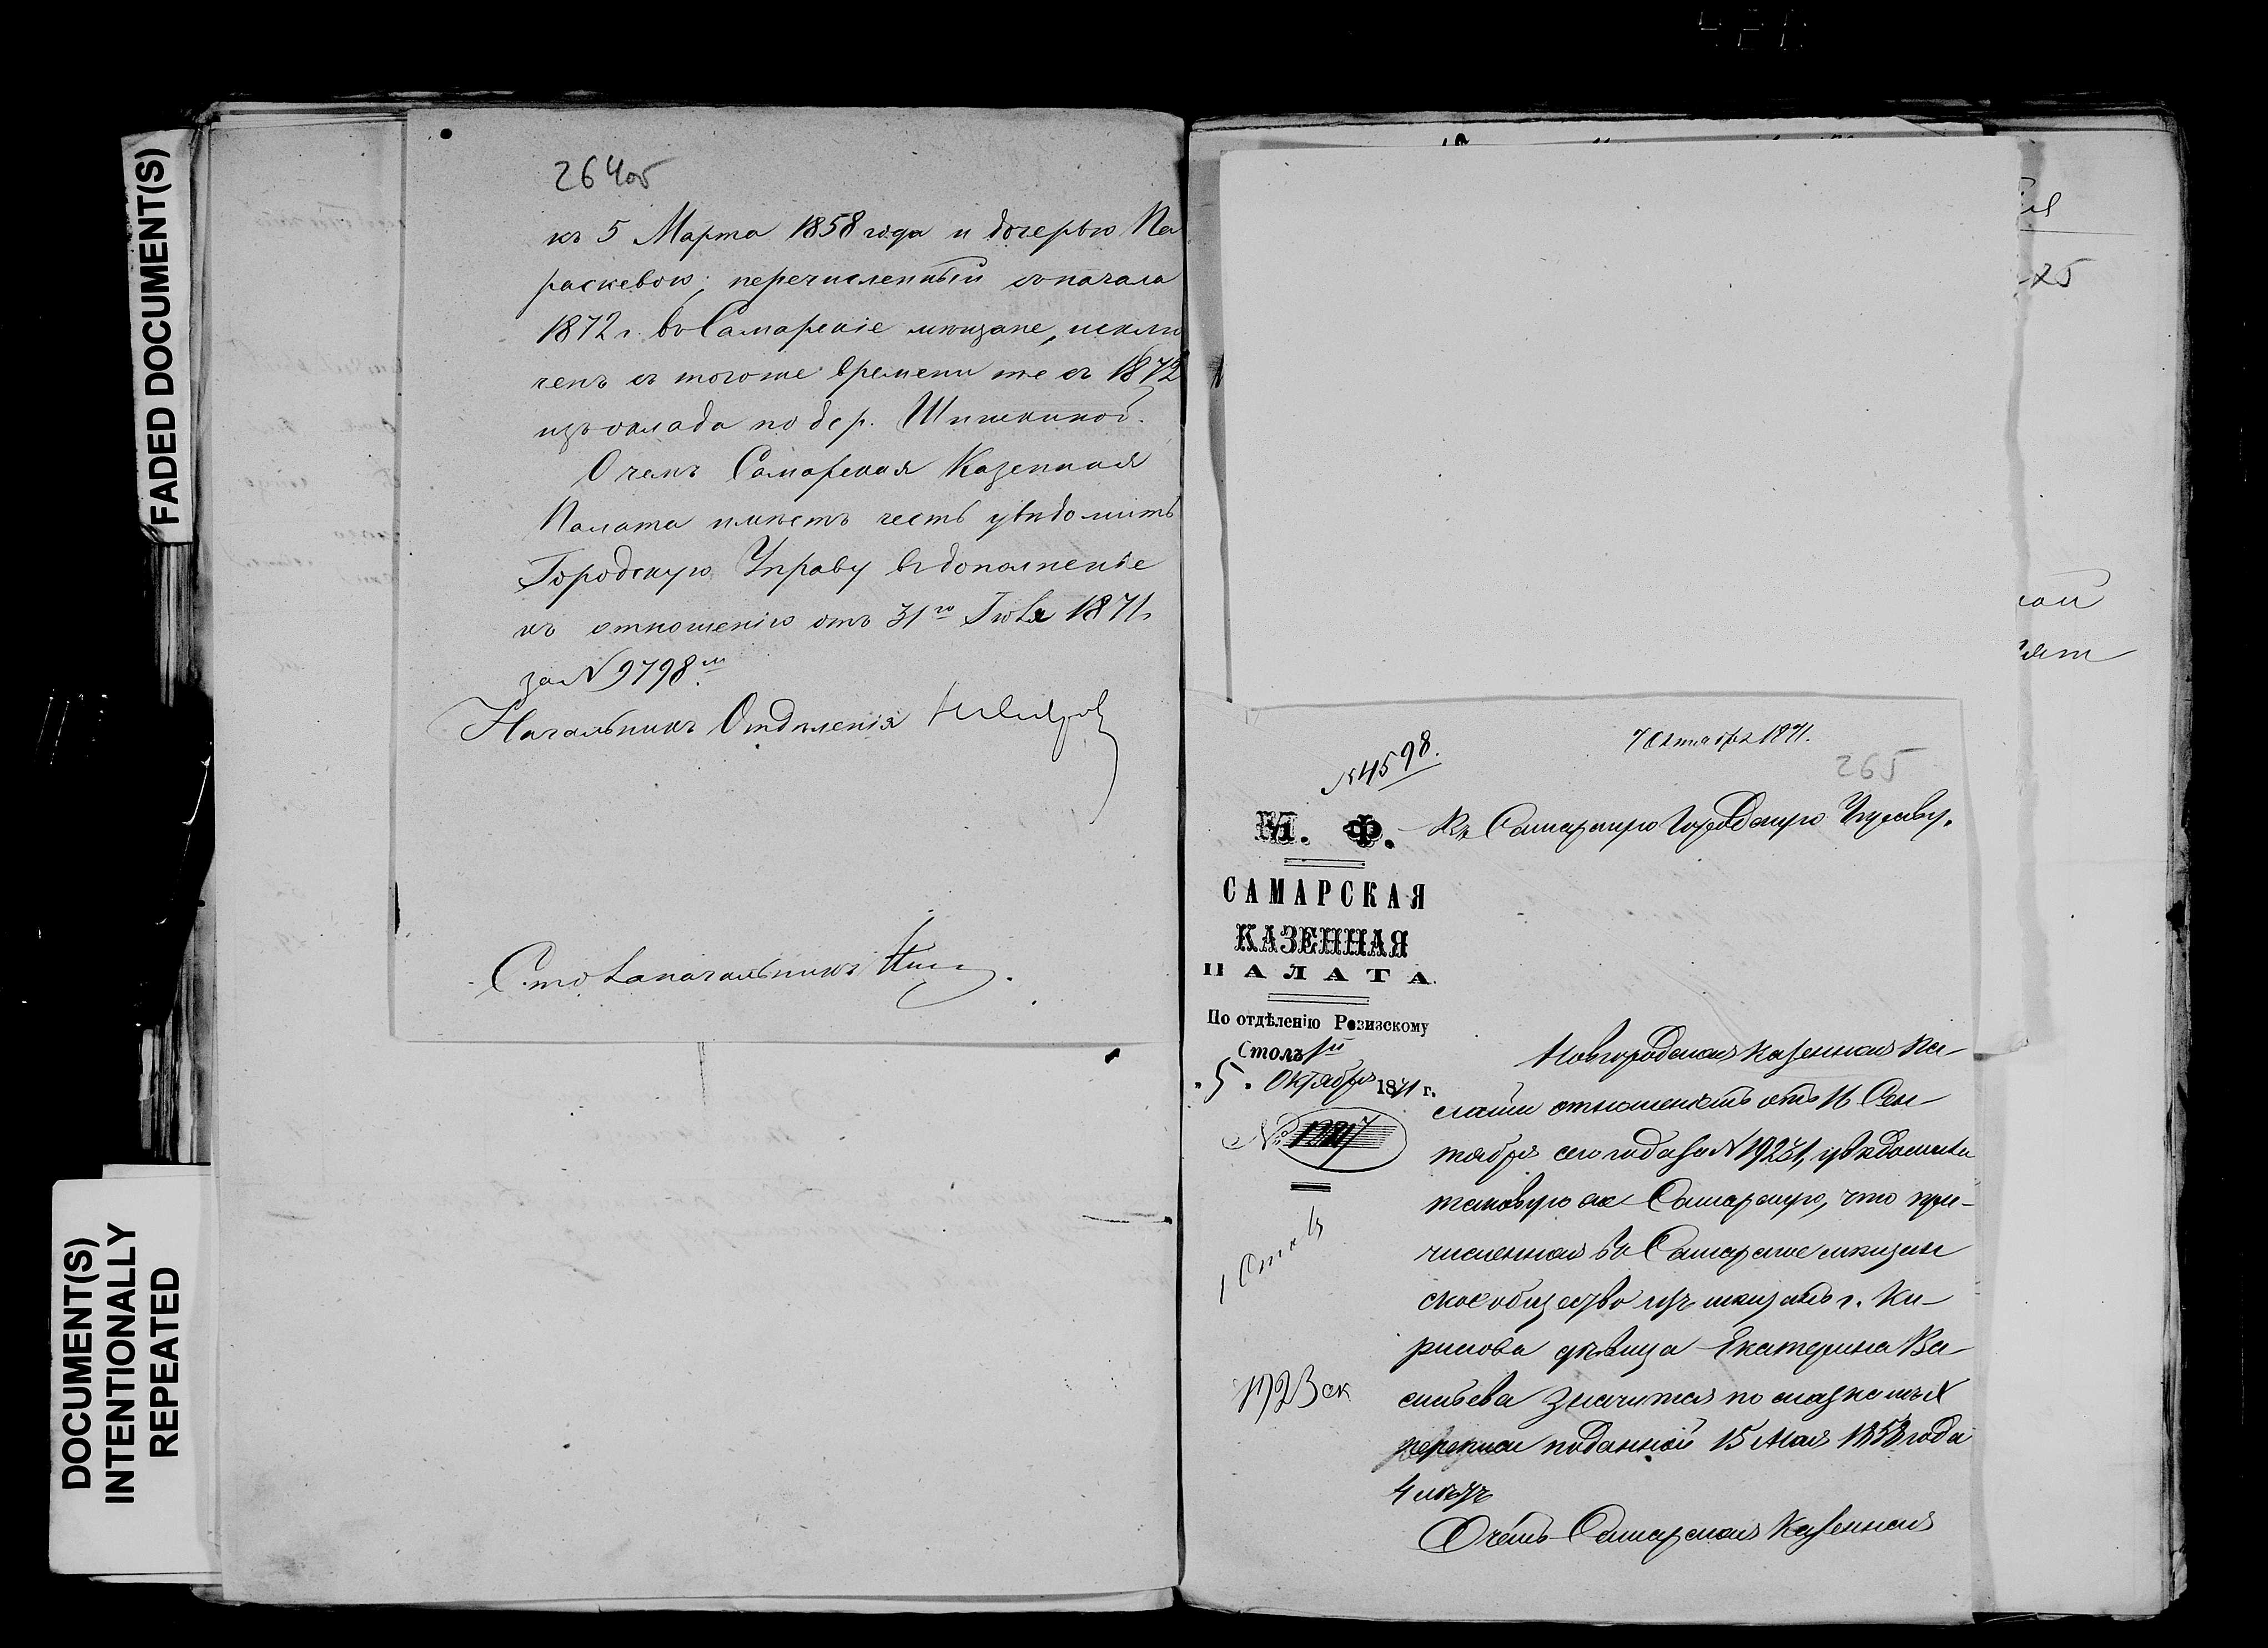 FADED DOCUMENT(S)
DOCUMENT(S)
INTENTIONALLY
REPEATED
264об
къ 5 Марта 1858 года и дочерью Па
раскевою, перечисленный съ начала
1872 г. въ Самарскіе мѣщане, исклю
ченъ съ того же времени т е съ 1872
изъ оклада по дер. Шишкиной.
О чемъ Самарская Казенная
Палата имѣетъ честь увѣдомить
Городскую Управу въ дополненіе
къ отношенію отъ 31го Іюля 1871 г
за N 9798м
Начальникъ Отдѣленія
Столоначальникъ
7 Октября 1871.
N 4598.
265
М. Ф.
Въ Самарскую Городскую Управу.
САМАРСКАЯ
КАЗЕННАЯ
ПАЛАТА
По отдѣленію Ревизскому
Столъ 1й
5 Октября 1871 г.
№
Новгородская Казенная Па-
лата отношеніемъ отъ 16 Сен-
тября сего года за N 19231, увѣдомила
таковую же Самарскую, что при-
численная въ Самарское мѣщан
ское общество изъ мѣщанъ г. Ки-
рилова дѣвица Екатерина Ва-
сильева значится по сказкамъ X
переписи поданной 15 Мая 1858 года
4 лѣтъ
О чемъ Самарская Казенная